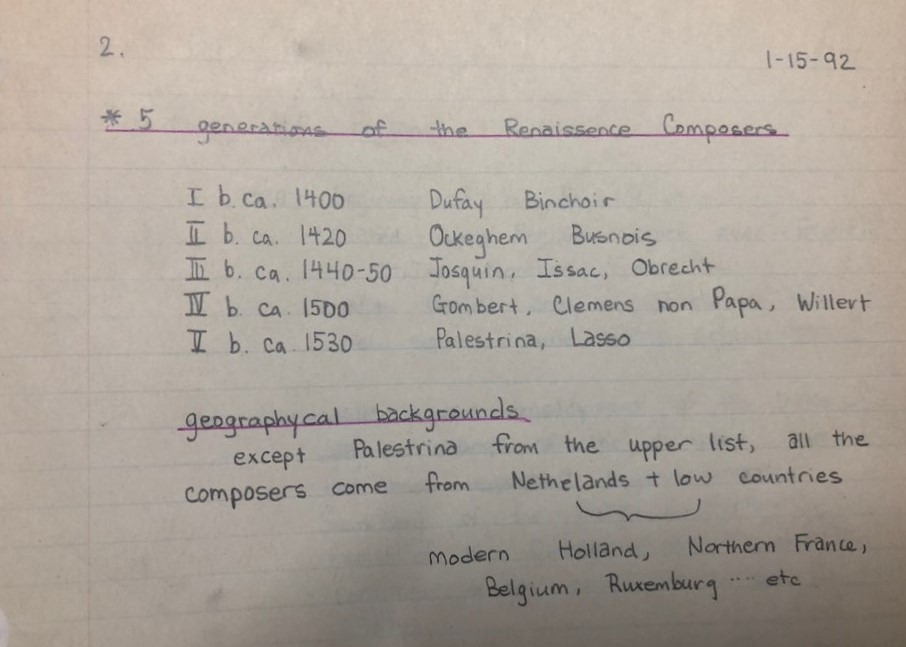 2.
1-15-92
* 5 generations of the Renaissence Composers
I b. ca. 1400 Dufay Binchoir
II b. ca. 1420 Ockeghem Busnois
III b. ca. 1440-50 Josquin, Issac, Obrecht
IV b. ca. 1500 Gombert, Clemens non Papa, Willert
V b. ca 1530 Palestrina, Lasso
geographycal backgrounds
except Palestrina from the upper list, all the
composers come from Nethelands + low countries
modern Holland, Northern France,
Belgium, Ruxemburg .... etc